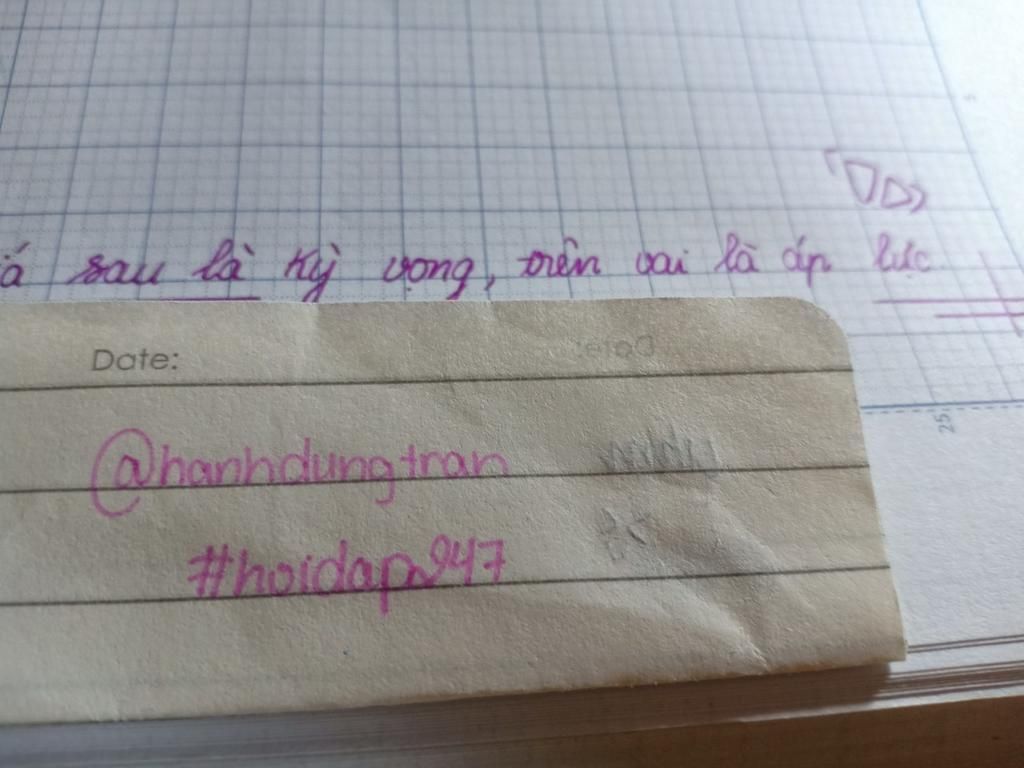 sau là kỳ vọng, trên vai là áp lực
Date:
@hanhdungtran
#hoidap247
5
25